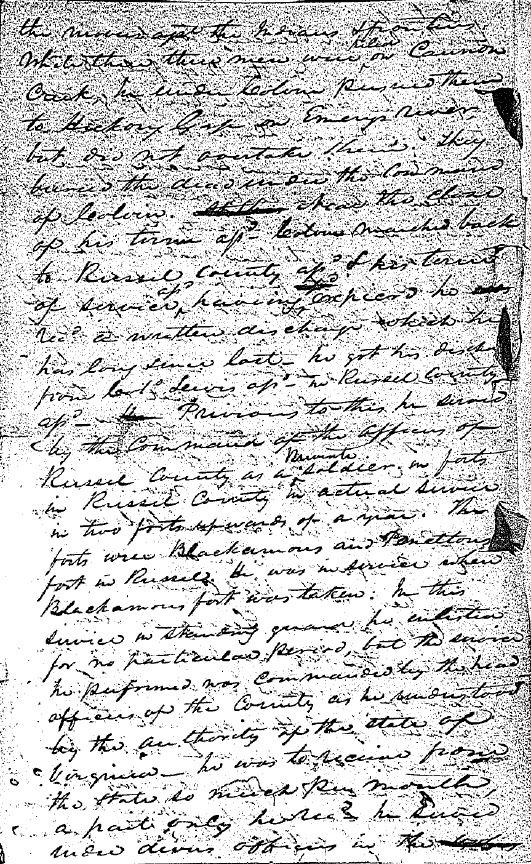 the moves afst the Indians & frontiers
While there three men were killed on Cannon
Creek, he under Colvin pursued them
to Hickory Gap on Emerys river
but did not overtake them. They
buried the dead under the Command
of Colvin. Near the close
of his term afsd Colvin marched back
to Russel County afsd & his term
of service afsd having expired he
recd a written discharge which he
has long since lost - he got his disch
from Capt Lewis afsd in Russel County
afsd - Previous to this he served
by the Command of the officers of
Russel County as a private soldier in forts
in Russel County in actual service
in two forts upwards of a year. The
forts were Blackamous and
fort in Russel. He was in service when
Blackamous fort was taken. In this
service in standing guard he enlisted
for no particular period, but the service
he performed was commanded by the head
officers of the County as he understood
by the authority of the state of
Virginia - he was to receive from
the State so much per month,
a part only he recd he served
under divers officers in the